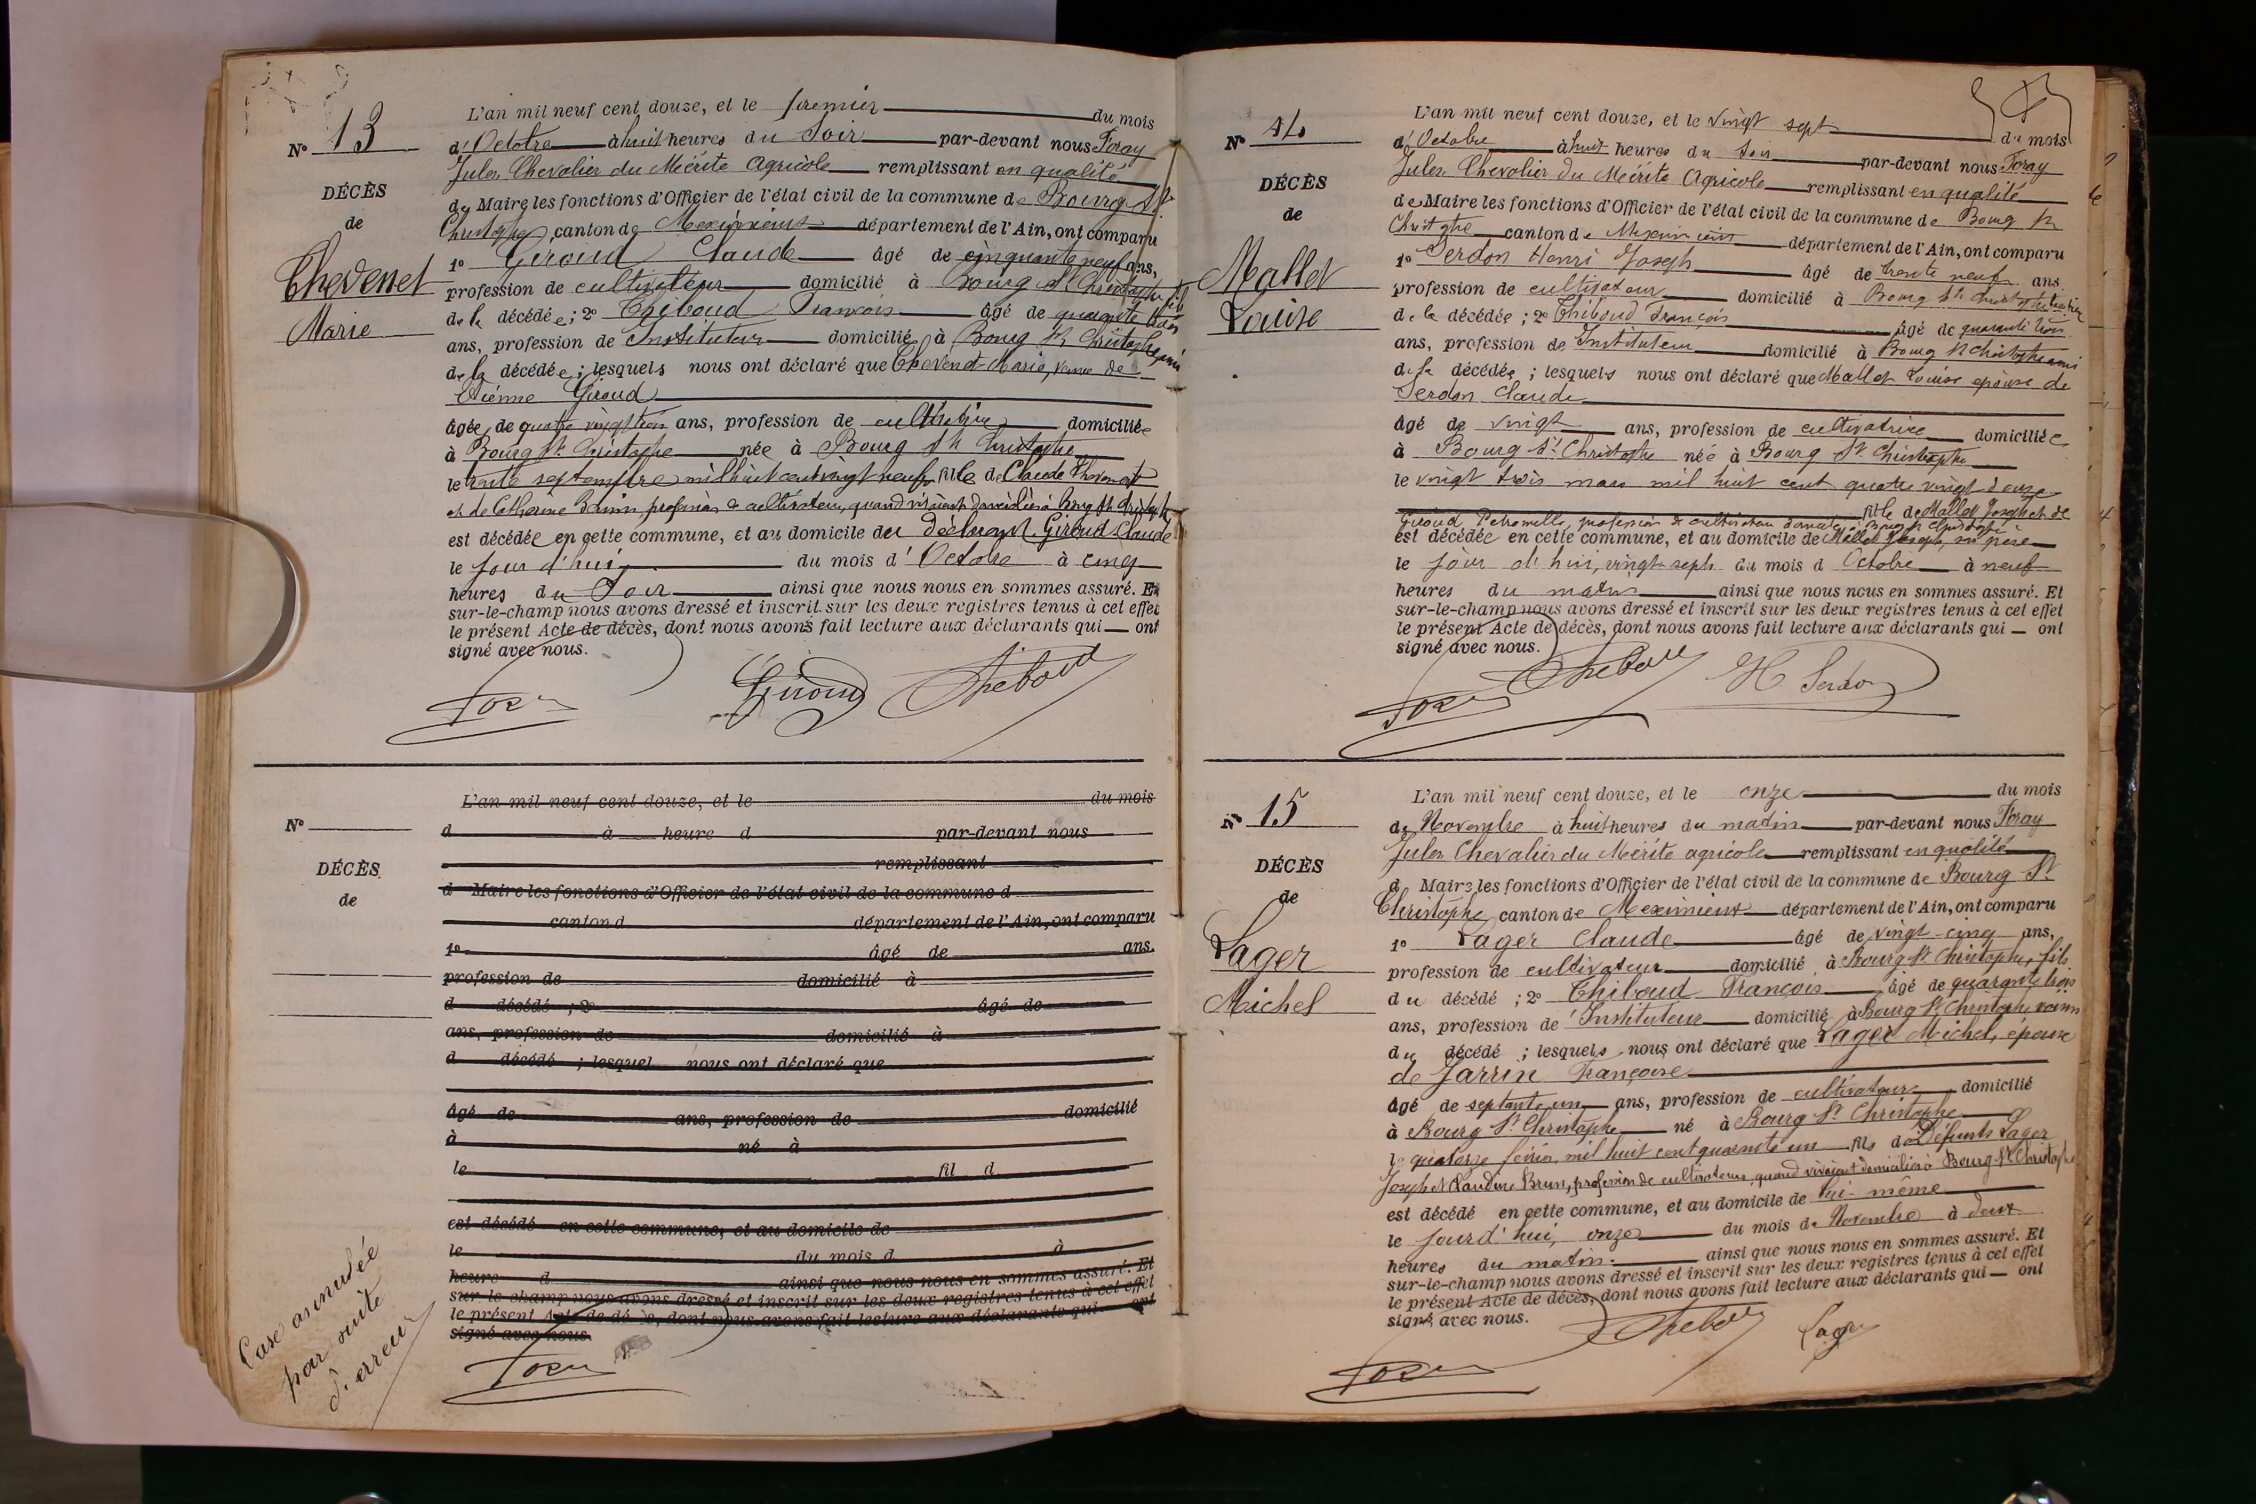 N° 13
DÉCÈS
de
Chevenet
Marie
L'an mil neuf cent douze, et le premier du mois
d'Octobre à huit heures du Soir par-devant nous Foray
Jules Chevalier du Mérite Agricole remplissant en qualité
de Maire les fonctions d'Officier de l'état civil de la commune de Bourg St
Christophe, canton de Meximieux département de l'Ain, ont comparu
1° Giroud Claude âgé de cinquante neuf ans,
profession de cultivateur domicilié à Bourg St Christophe fils
de la décédée; 2° Thiboud François âgé de quarante trois
ans, profession de Instituteur domicilié à Bourg St Christophe ami
de la décédée; lesquels nous ont déclaré que Chevenet Marie, veuve de
Etienne Giroud
âgée de quatre vingt trois ans, profession de cultivatrice domiciliée
à Bourg St Christophe née à Bourg St Christophe
le trente septembre mil huit cent vingt neuf, fille de Claude Chevenet
et de Catherine profession de cultivateurs, quand vivaient domiciliés à Bourg St Christophe
est décédée en cette commune, et au domicile du déclarant Giroud Claude
le jour d'hui du mois d'Octobre à cinq
heures du Soir ainsi que nous nous en sommes assuré. Et
sur-le-champ nous avons dressé et inscrit sur les deux registres tenus à cet effet
le présent Acte de décès, dont nous avons fait lecture aux déclarants qui ont
signé avec nous.
Foray Giroud Thiboud
N°
DÉCÈS
de
L'an mil neuf cent douze, et le du mois
d à heure d par-devant nous
remplissant
d Maire les fonctions d'Officier de l'état civil de la commune d
canton d département de l'Ain, ont comparu
1° âgé de ans.
profession de domicilié à
d décédé ; 2° âgé de
ans, profession de domicilié à
d décédé ; lesquel nous ont déclaré que
âgé de ans, profession de domicilié
à né à
le fil d
est décédé en cette commune, et au domicile de
le du mois d à
heure d ainsi que nous nous en sommes assuré. Et
sur-le-champ nous avons dressé et inscrit sur les deux registres tenus à cet effet
le présent Acte de décès, dont nous avons fait lecture aux déclarants qui ont
signé avec nous.
Case annulée
par suite
d'erreur
Foray
N° 14
DÉCÈS
de
Mallet
Louise
L'an mil neuf cent douze, et le vingt sept du mois
d'Octobre à huit heures du soir par-devant nous Foray
Jules Chevalier du Mérite Agricole remplissant en qualité
de Maire les fonctions d'Officier de l'état civil de la commune de Bourg St
Christophe canton de Meximieux département de l'Ain, ont comparu
1° Serdon Henri Joseph âgé de trente neuf ans.
profession de cultivateur domicilié à Bourg St Christophe
de la décédée ; 2° Thiboud François âgé de quarante trois
ans, profession de Instituteur domicilié à Bourg St Christophe ami
de la décédée ; lesquels nous ont déclaré que Mallet Louise épouse de
Serdon Claude
âgé de vingt ans, profession de cultivatrice domiciliée
à Bourg St Christophe née à Bourg St Christophe
le vingt trois mars mil huit cent quatre vingt douze
fille de Mallet Joseph et de
Giroud Petronille, profession de cultivateurs Bourg St Christophe
est décédée en cette commune, et au domicile de Mallet Joseph, son père
le jour d'hui, vingt sept du mois d Octobre à neuf
heures du matin ainsi que nous nous en sommes assuré. Et
sur-le-champ nous avons dressé et inscrit sur les deux registres tenus à cet effet
le présent Acte de décès, dont nous avons fait lecture aux déclarants qui ont
signé avec nous.
Foray Thiboud H Serdon
N° 15
DÉCÈS
de
Lager
Michel
L'an mil neuf cent douze, et le onze du mois
de Novembre à huit heures du matin par-devant nous Foray
Jules Chevalier du Mérite agricole remplissant en qualité
d Maire les fonctions d'Officier de l'état civil de la commune de Bourg St
Christophe canton de Meximieux département de l'Ain, ont comparu
1° Lager Claude âgé de vingt-cinq ans,
profession de cultivateur domicilié à Bourg St Christophe, fils
du décédé ; 2° Thiboud François âgé de quarante trois
ans, profession de Instituteur domicilié à Bourg St Christophe voisin
du décédé ; lesquels nous ont déclaré que Lager Michel, époux
de Jarrin Françoise
âgé de septante un ans, profession de cultivateur domicilié
à Bourg St Christophe né à Bourg St Christophe
le quatorze février mil huit cent quarante un fils de Défunts Lager
Joseph et Claudine Brun, profession de cultivateurs, quand vivaient domiciliés à Bourg St Christophe
est décédé en cette commune, et au domicile de lui-même
le jour d'hui, onze du mois de Novembre à deux
heures du matin. ainsi que nous nous en sommes assuré. Et
sur-le-champ nous avons dressé et inscrit sur les deux registres tenus à cet effet
le présent Acte de décès, dont nous avons fait lecture aux déclarants qui ont
signé avec nous.
Foray Thiboud Lager